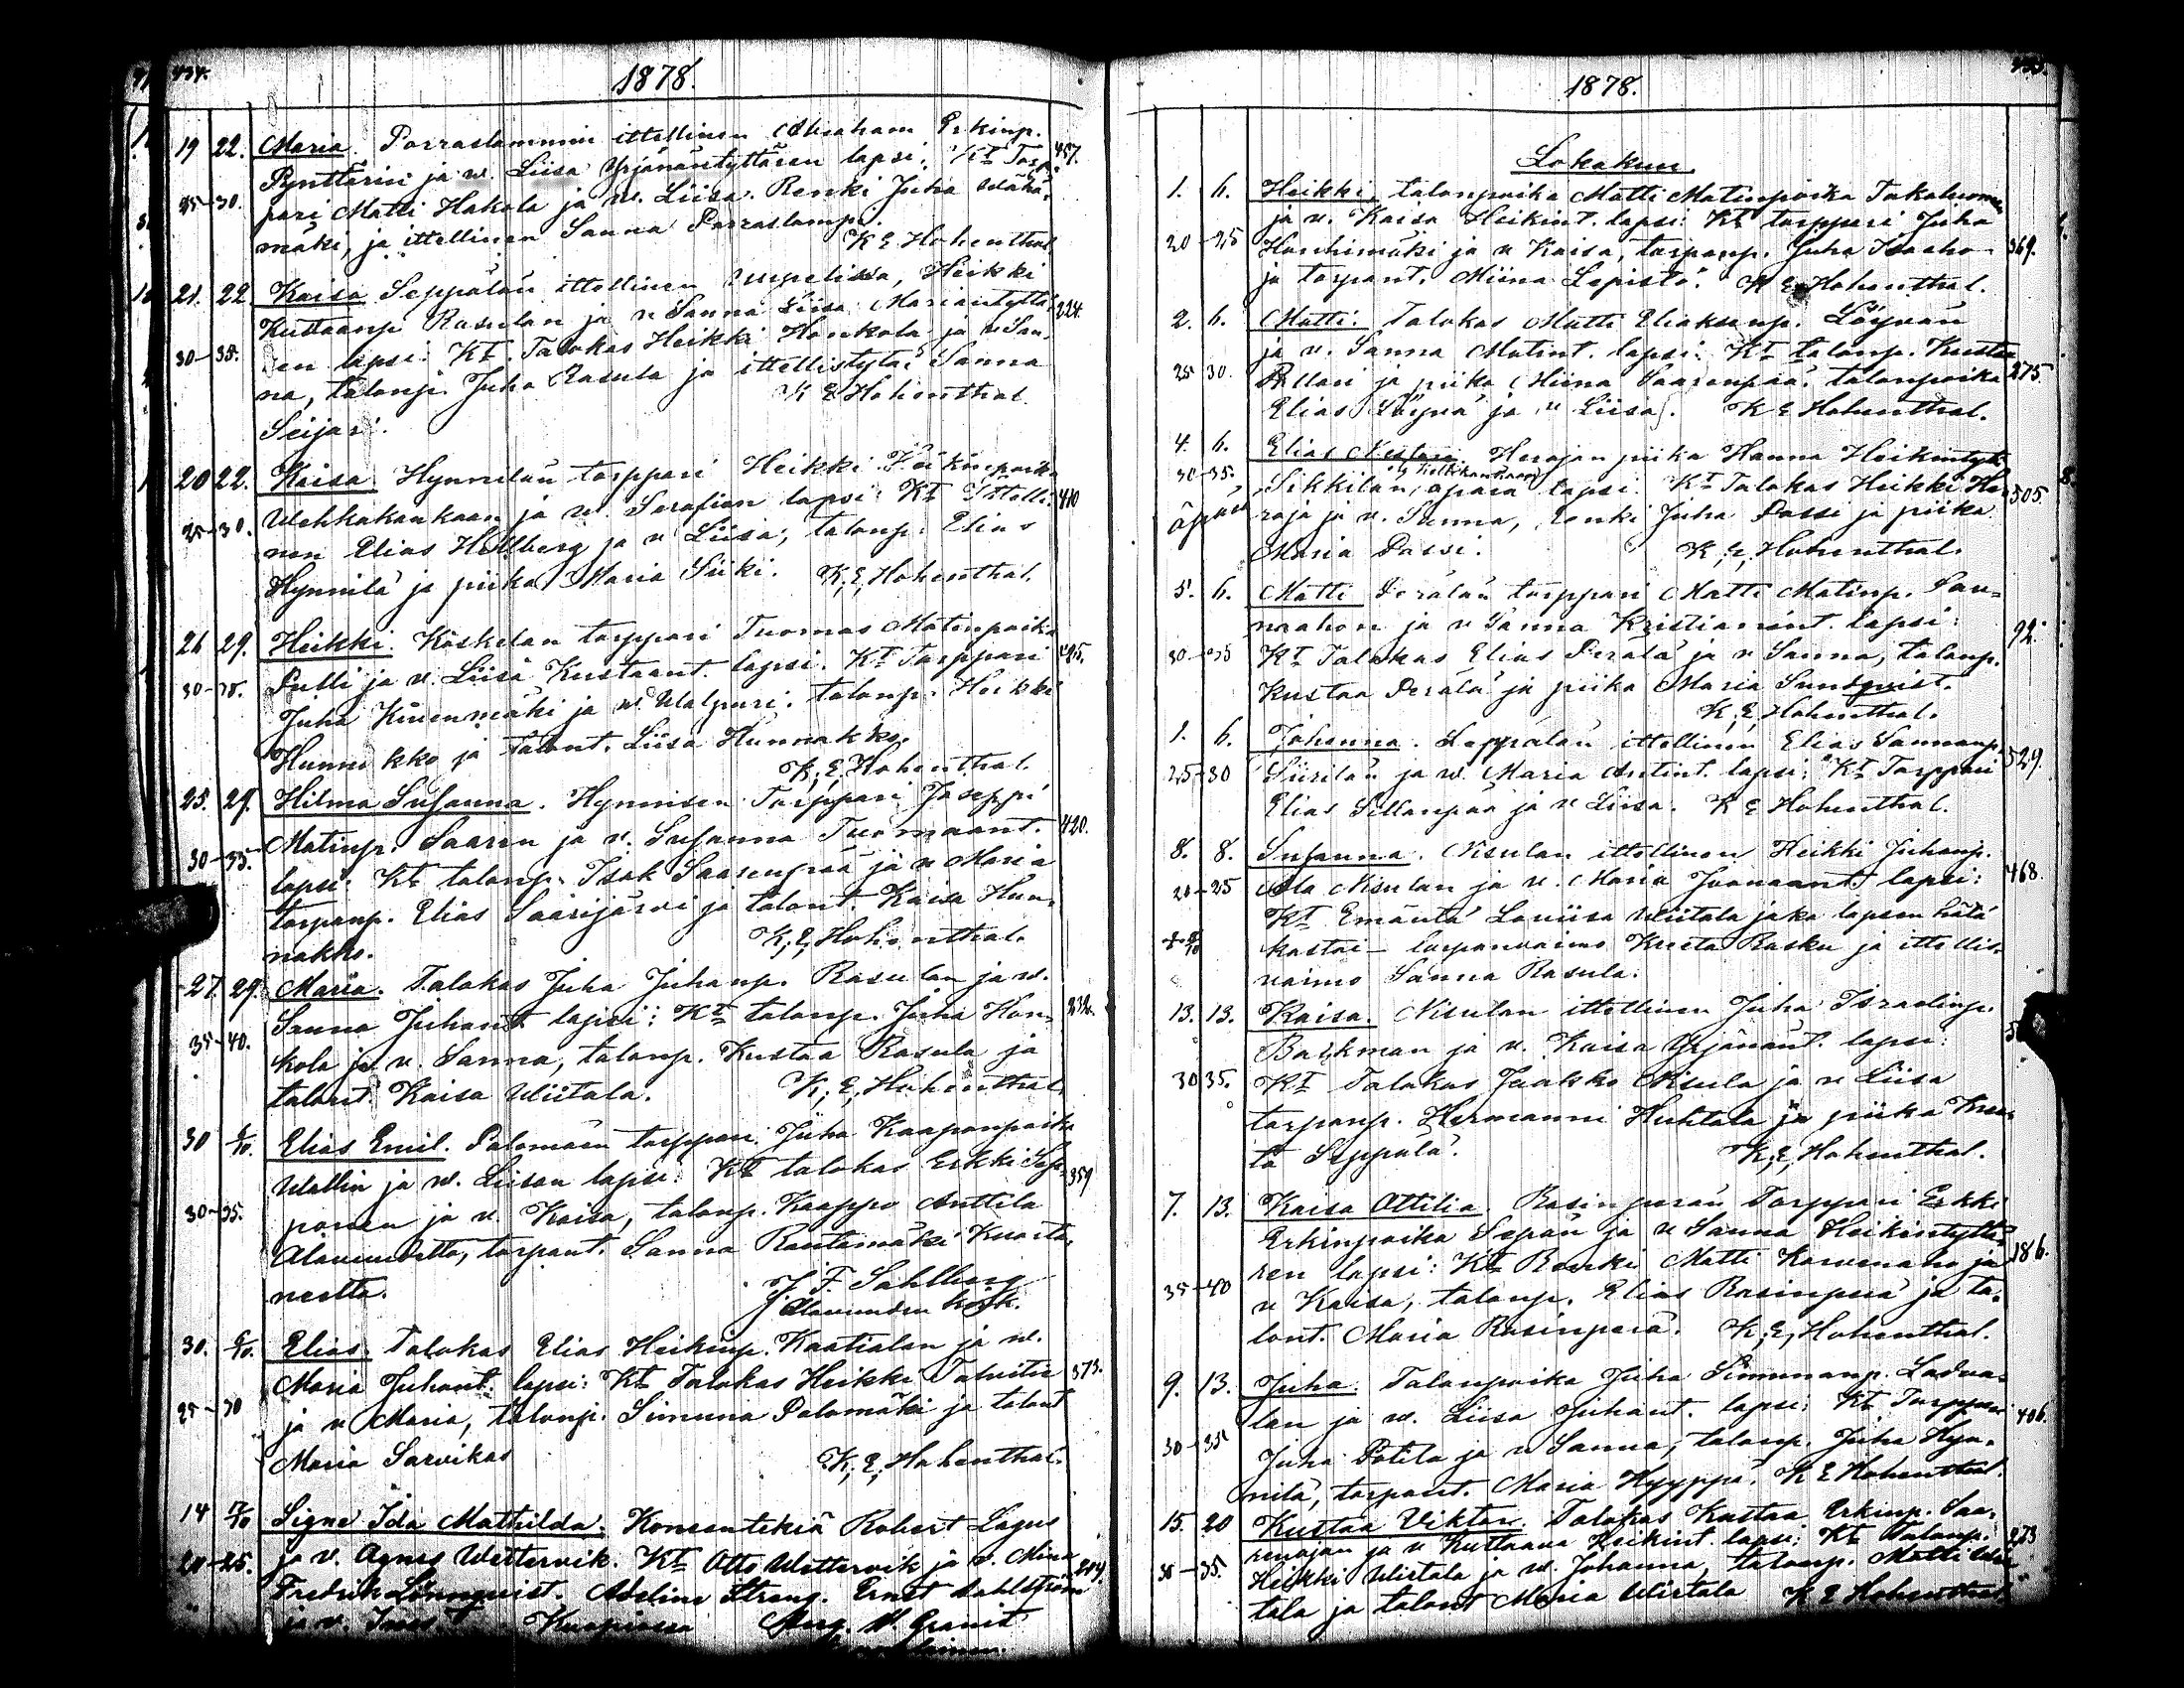 434.
1878.
19 22. Maria. Porraslammin ittellinen Abraham Erkinp. 457.
Pynttärin ja w. Liisa Yrjänäntyttären lapsi: Kt Torp-
25-30. pari Matti Hakola ja w. Liisa. Renki Juha Wähä-
mäki, ja ittellinen Sanna Porraslampi.
K E Hohenthal
21. 22 Kaisa Seppälän ittellinen Heikki
Kustaanp. Rasulan ja w Sanna Liisa Mariantyttä- 224.
30-35. ren lapsi: Kt. Talokas Heikki Honkola ja w San-
na, talonp. Juha Rasula ja ittellistytär Sanna
Seijari.
K E Hohenthal.
20 22. Kaisa Hynnilän torppari Heikki
Wehkakankaan ja w. Serafian lapsi: Kt Ittelli- 410
25-30. nen Elias Hellberg ja w Liisa, talonp. Elias
Hynnilä ja piika Maria Siiki. K. E. Hohenthal.
26 29. Heikki. Koskelan torppari Tuomas Matinpoika 495.
30-35. Pulli ja w. Liisa Kustaant. lapsi. Kt Torppari
Juha Kiwenmäki ja w Walpuri. talonp. Heikki
Hunnakko ja talont. Liisa Hunnakko.
K. E. Hohenthal.
25. 29. Hilma Susanna. Hynnisen Torppari Jaseppi
Matinp. Saaren ja w. Susanna Tuomaant. 420.
30-35. lapsi: Kt talonp. Isak Saarenpää ja w Maria
torpanp. Elias Saarijärvi ja talont. Kaisa Hun-
nakko.
K. E. Hohenthal.
27. 29. Maria. Talokas Juha Juhanp. Rasulan ja w.
Sanna Juhant. lapsi: Kt talonp. Juha Hon- 232.
35-40. kola ja w. Sanna, talonp. Kustaa Rasula ja
talont. Kaisa Wiitala. K. E. Hohenthal
30 6/10. Elias Emil. Palomäen torppari Juha Kaaponpoika
Wallin ja w. Liisan lapsi: Kt talokas Erkki Sep- 359
30-35. ponen ja w. Kaisa, talonp. Kaappo Anttila
Alawudelta, torpant. Sanna Rautamäki Kuorta-
neelta.
J F Sahlberg
Alawuden kirk.
30. 6/10. Elias. Talokas Elias Heikinp. Kaatialan ja w.
Maria Juhant. lapsi: Kt Talokas Heikki Talvitie 373.
25-30 ja w Maria, talonp. Simuna Palomäki ja talont
Maria Sarvikas K. E. Hohenthal.
14 17/10 Signe Ida Mathilda. Konseentekiä Robert Lagus
20-25. ja w. Agnes Wettervik. Kt Otto Wettervik ja w. Mina
Fredrik Lönnqvist. Adeline Streng. Ernst Dahlström
ja w. Kuopiossa Aug. W. Granit
1878.
Lokakuu
1. 6. Heikki, talonpoika Matti Matinpoika Takaluoman
ja w. Kaisa Heikint. lapsi: Kt torppari Juha
20-25 Hanhimäki ja w Kaisa, torpanp. Juha Isoaho 369.
ja torpant. Miina Lepistö. K E Hohenthal.
2. 6. Matti. Talokas Matti Eliaksenp. Löyvän
ja w. Sanna Matint. lapsi: Kt talonp. Kustaa
25 30. Pollari ja piika Miina Saarenpää. talonpoika 275
Elias Löyvä ja w Liisa. K E Hohenthal.
4. 6. Elias Nestori. Herajan piika Hanna Heikintytt.
30-35. Sikkilän, äpärä lapsi. Kt Talokas Heikki He- 505.
äpärä raja ja w. Sanna, renki Juha Passi ja piika
Maria Passi. K. E. Hohenthal.
5. 6. Matti Perälän torppari Matti Matinp. Pau-
naahon ja w Sanna Kristianint. lapsi: 92.
30-35 Kt Talokas Elias Perälä ja w Sanna, talonp.
Kustaa Perälä ja piika Maria Sundqvist.
K. E. Hohenthal.
1. 6. Johanna. Leppälän ittellinen Elias Sannanp. 529.
25-30 Siirilän ja w. Maria Antint. lapsi: Kt Torppari
Elias Sillanpää ja w Liisa. K E Hohenthal.
8. 8. Susanna. Nisulan ittellinen Heikki Juhanp.
20-25 Ala Nisulan ja w. Maria Joonaant. lapsi: 468.
Kt Emäntä Lowiisa Wiitala joka lapsen hätä
kastoi — torpanwaimo Kreeta Rasku ja ittellis-
waimo Sanna Rasula.
13. 13. Kaisa. Nisulan ittellinen Juha Israelinp.
Backman ja w. Kaisa Yrjänänt. lapsi:
30 35. Kt Talokas Jaakko Nisula ja w Liisa
torpanp. Hermanni Huhtala ja piika Kree-
ta Seppälä. K. E. Hohenthal.
7. 13. Kaisa Ottilia. Rasinperän Torppari Erkki
Erkinpoika Sepän ja w Sanna Heikintyttä-
ren lapsi: Kt Renki Matti Korvenaho ja 186.
35-40 w Kaisa, talonp. Elias Rasinperä ja ta-
lont. Maria Rasinperä. K. E. Hohenthal.
9. 13. Juha. Talonpoika Juha Simunanp. Ladva-
lan ja w. Liisa Juhant. lapsi: Kt Torppari 406.
30-35 Juha Potila ja w Sanna, talonp. Juha Hyn-
nilä, torpant. Maria Hyyppä. K E Hohenthal.
15. 20 Kustaa Viktor. Talokas Kustaa Erkinp. Saa-
renojan ja w Kustaava Heikint. lapsi: Kt Talonp. 273
30-35. Heikki Wiitala ja w. Johanna, talonp. Matti Wii-
tala ja talont Maria Wiitala K E Hohenthal